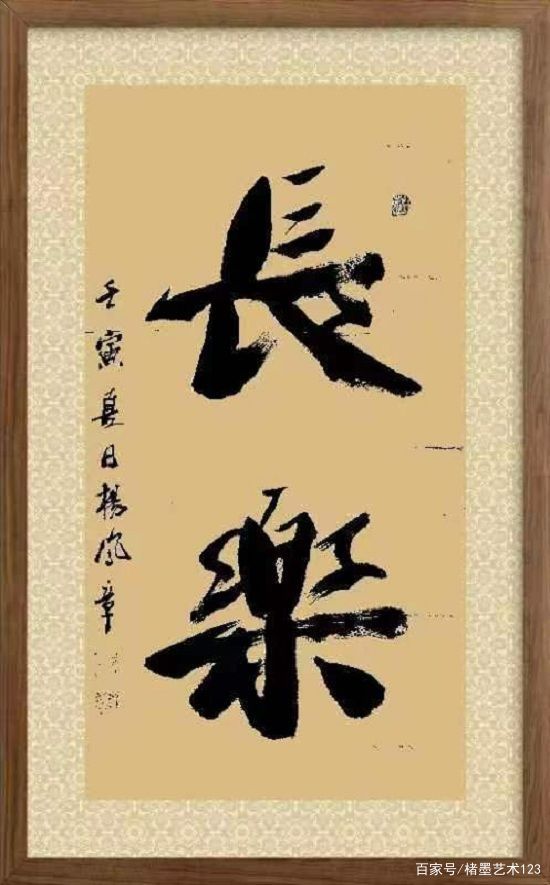 長樂
壬寅夏日楊鳳章
百家号/楮墨艺术123